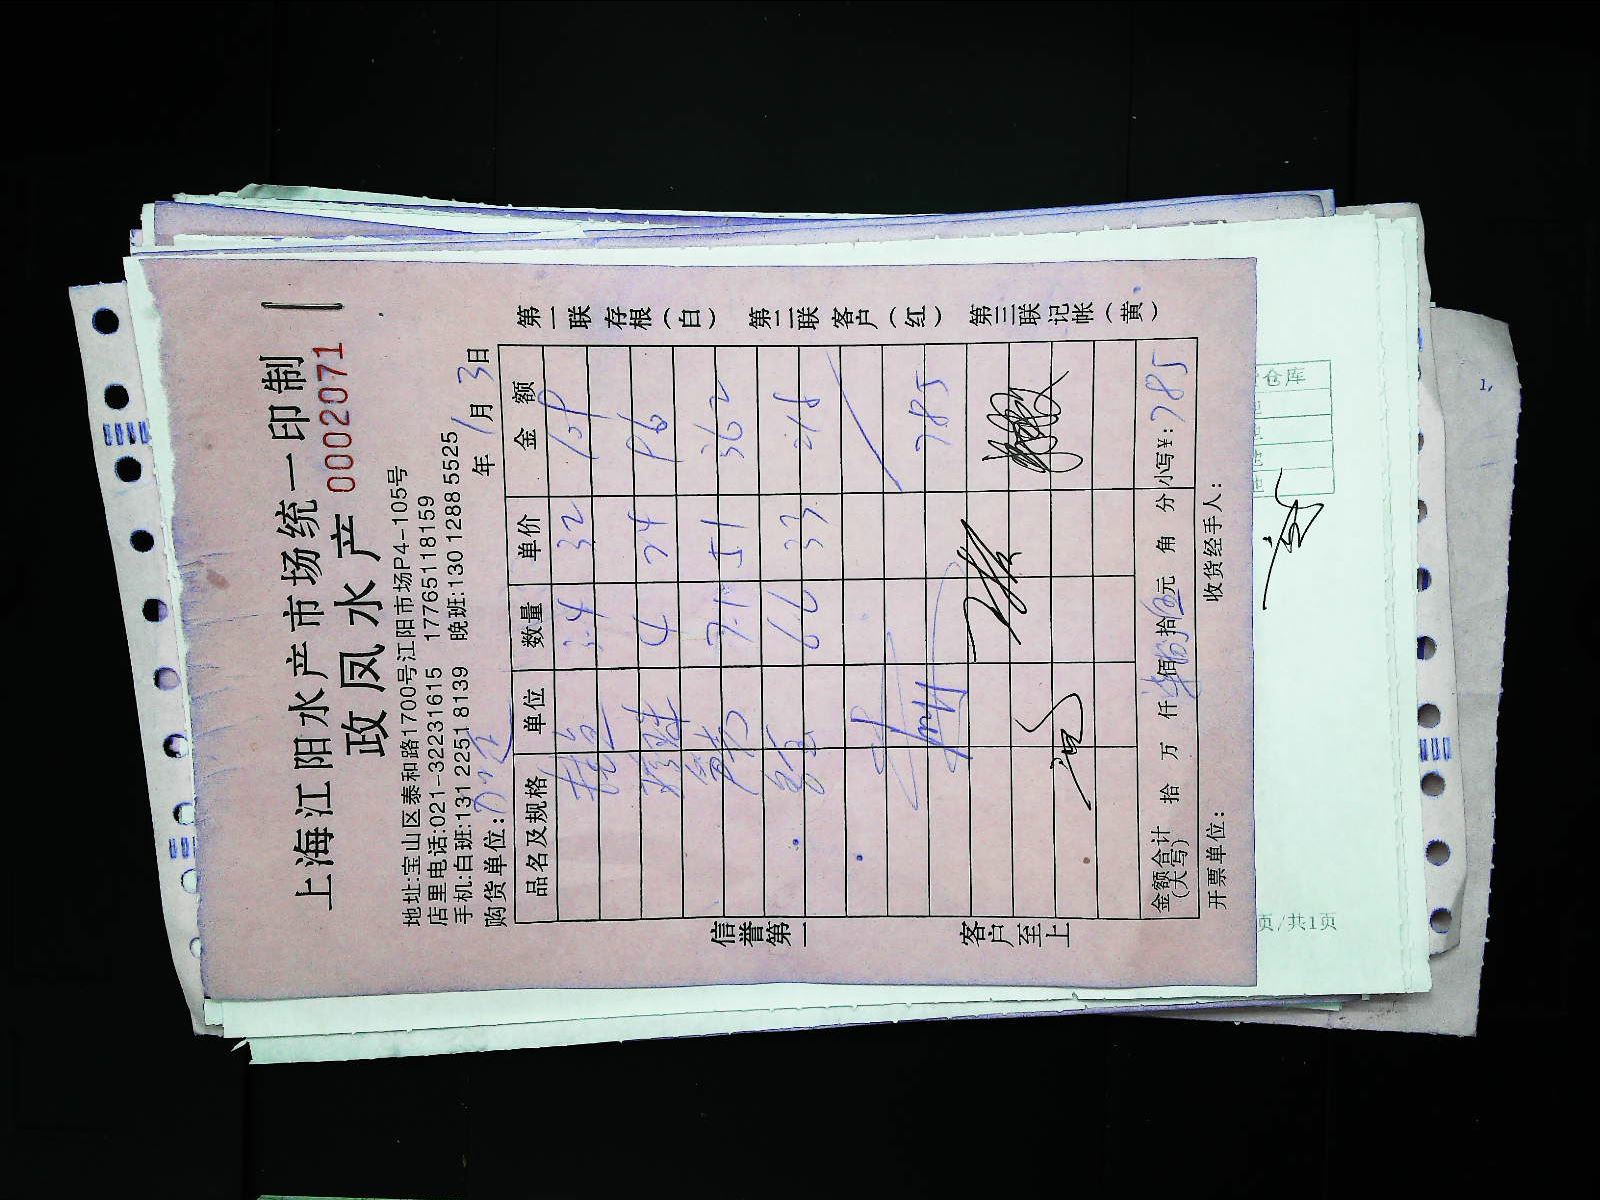 上海江阳水产市场统一印制
政凤水产 0002071
地址:宝山区泰和路1700号江阳市场P4-105号
店里电话:021-32231615 17765118159
手机:白班:131 2251 8139 晚班:130 1288 5525
购货单位: 年 1月3日
品名及规格 单位 数量 单价 金额
3.4 32 109
4 24 96
7.1 51 362
6.6 33 218
785
金额合计(大写) 拾 万 仟 佰 拾 元 角 分 小写¥: 785
开票单位: 收货经手人:
信誉第一 客户至上
第一联 存根(白) 第二联 客户(红) 第三联 记帐(黄)
仓库
页/共1页